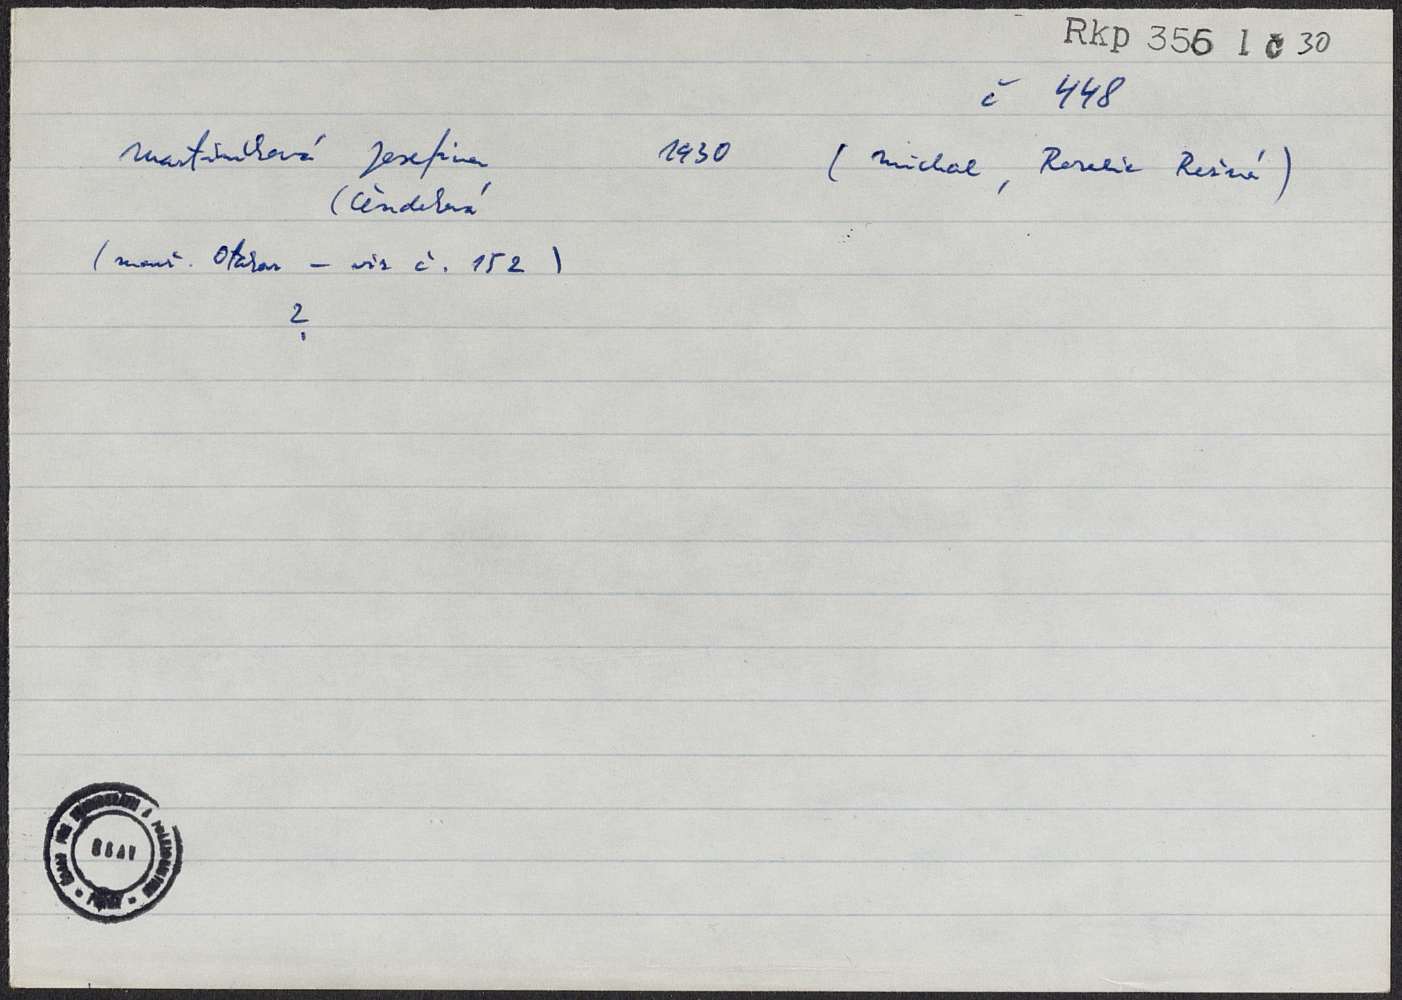 Rkp 356 l č 30
č 448
Martiníková Josefina 1930 (Michal, Rosalie Resná)
(Čendeková
(manž. Otakar – viz č. 152)
?
ČSAV